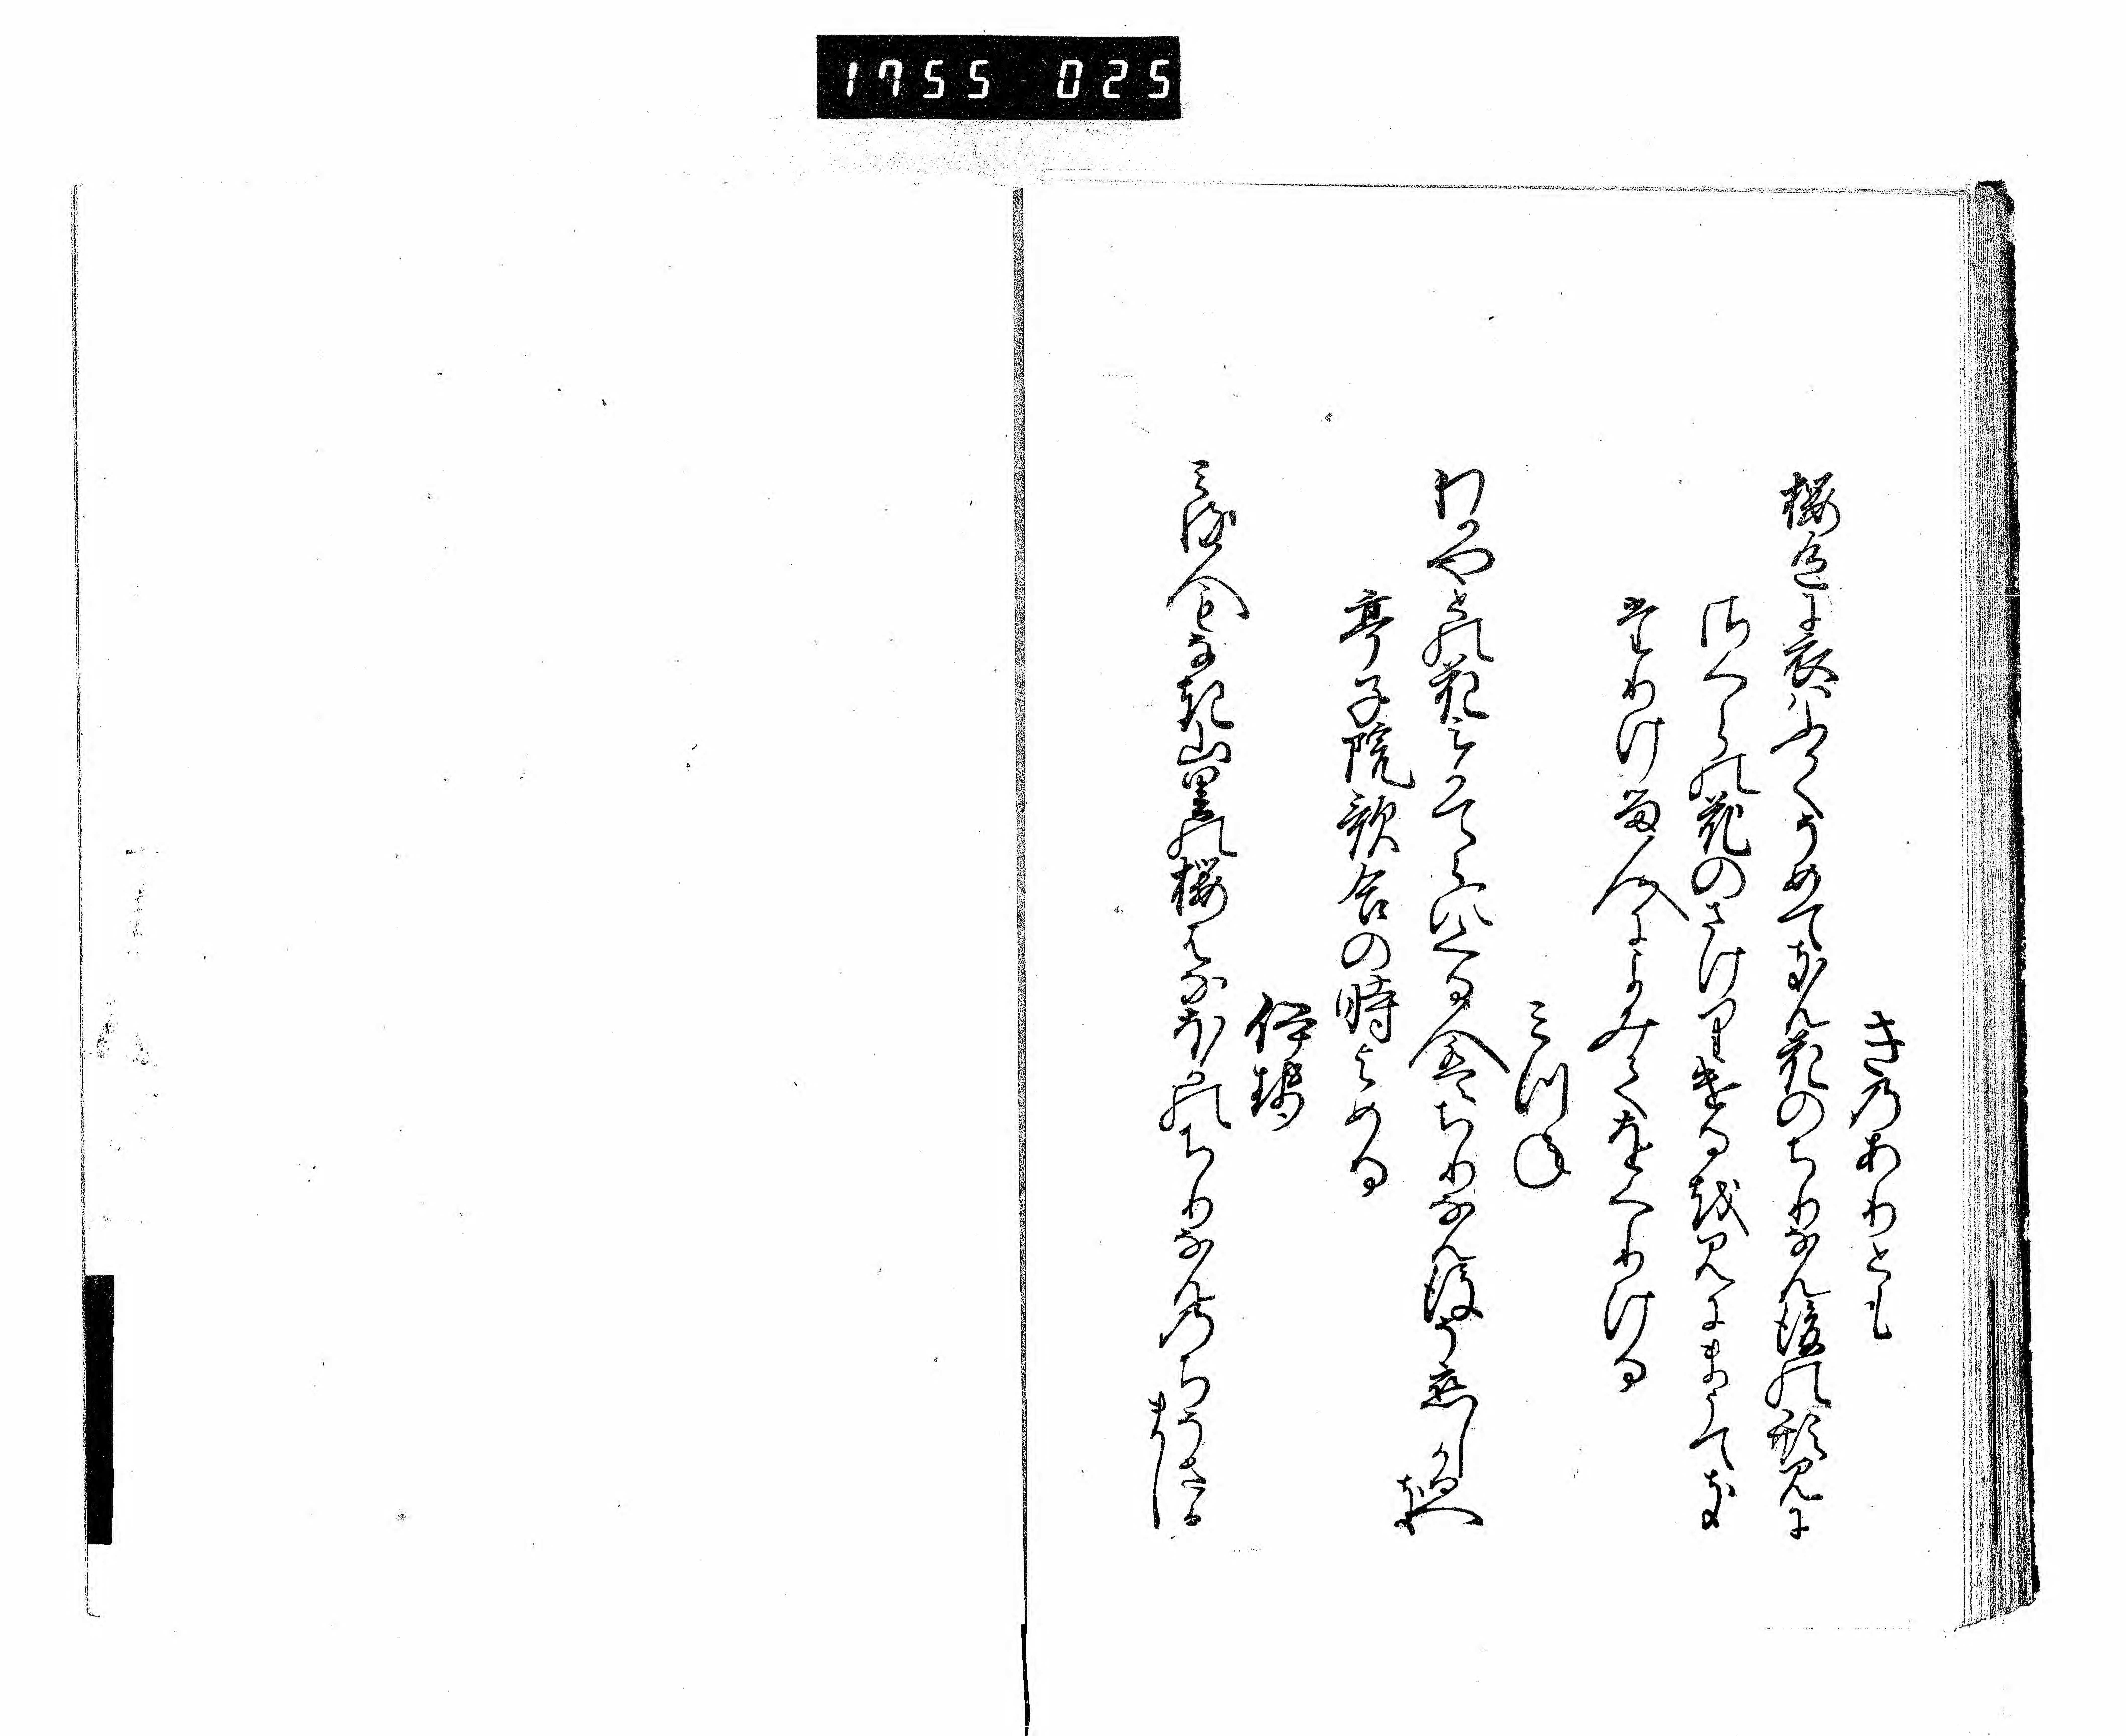 1755 025
きのありとも
桜色に衣はふかくそめてきん花のちりなん後の形見に
さくらの花のさけりける越見にまうてき
たりける人によみてをくりける
みつね
わかやとの花みかてらにくる人はちりなん後そ恋しかるへ
き
亭子院歌合の時よめる
伊勢
みる人もなき山里の桜はなほかのちりなんのちそさか
まし